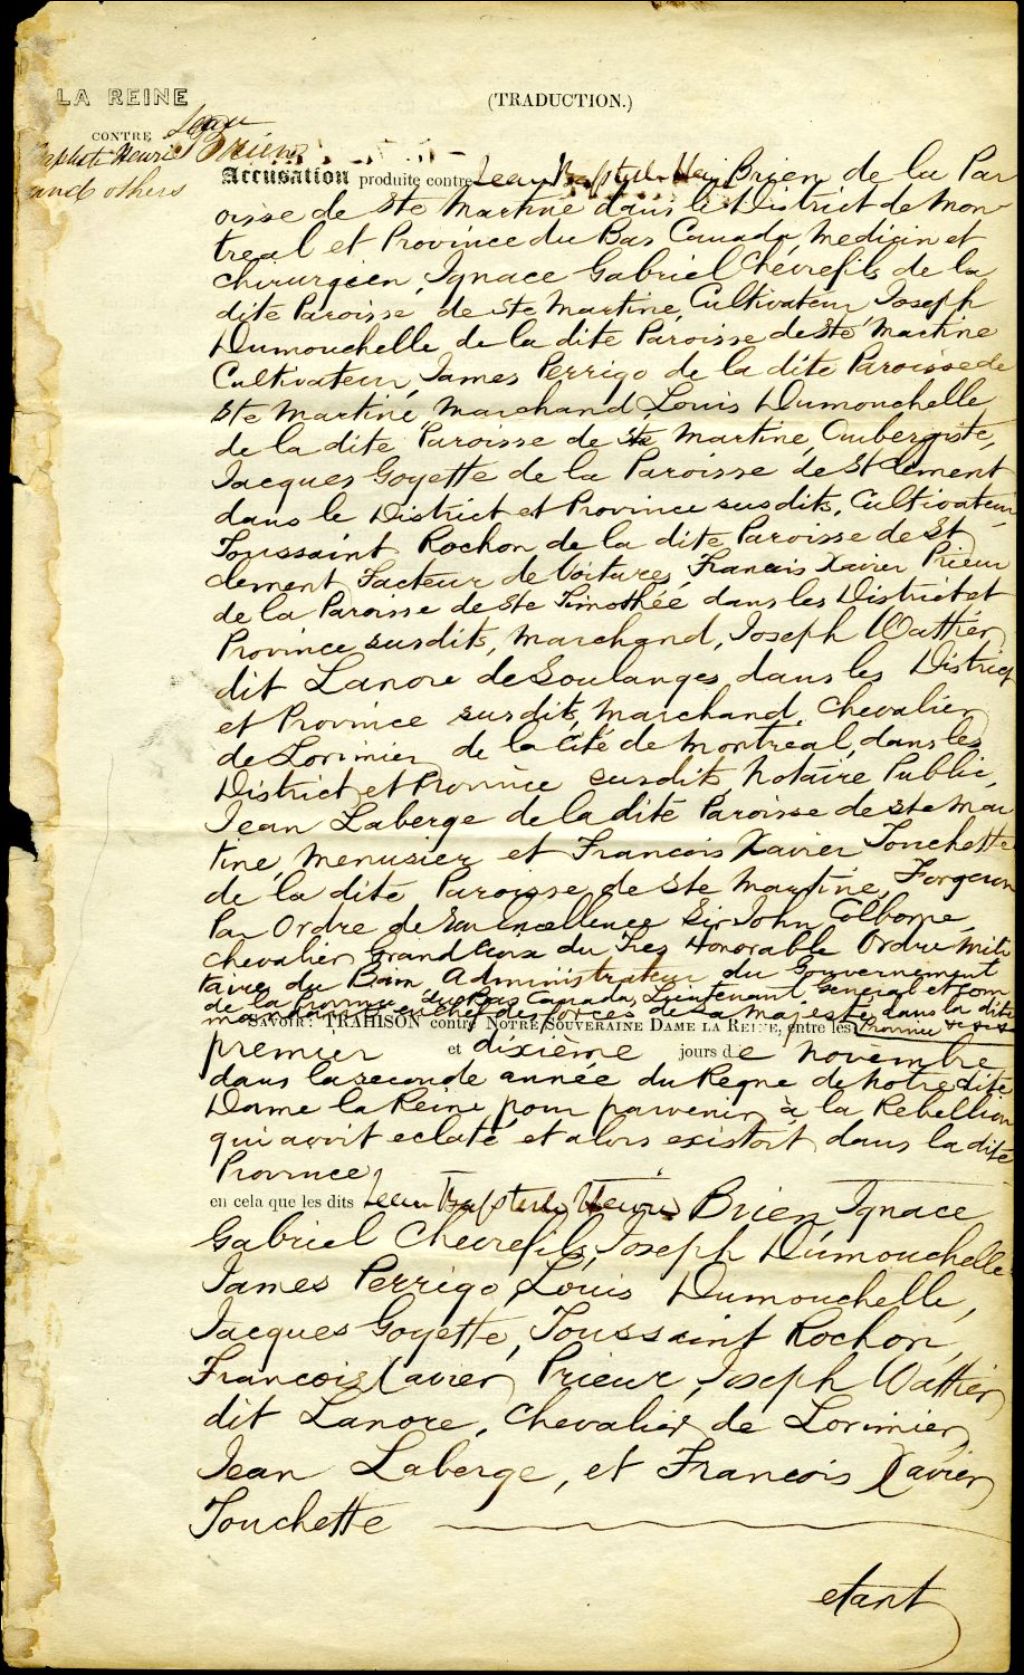 LA REINE
(TRADUCTION.)
CONTRE Jean
Baptiste Henri Brien
and others
Accusation produite contre Jean Baptiste Henri Brien de la Par
oisse de Ste Martine dans le District de Mon-
treal et Province du Bas Canada, Medicin et
Chirurgien, Ignace Gabriel Chevrefils de la
dite Paroisse de Ste Martine, Cultivateur Joseph
Dumouchelle de la dite Paroisse de Ste Martine
Cultivateur, James Perrigo de la dite Paroisse de
Ste Martine, Marchand, Louis Dumouchelle
de la dite Paroisse de Ste Martine, Aubergiste,
Jacques Goyette de la Paroisse de St Clement
dans le District et Province susdits, Cultivateur,
Toussaint Rochon de la dite Paroisse de St
Clement, Facteur de Voitures, Francis Xavier Prieur
de la Paroisse de Ste Timothée dans les District et
Province susdits, Marchand, Joseph Wattier
dit Lanore de Soulanges, dans les District
et Province susdits, Marchand, Chevalier
de Lorimier de la Cité de Montreal, dans les
District et Province susdits, Notaire Public,
Jean Laberge de la dite Paroisse de Ste Mar
tine, Menusier et Francois Xavier Touchette
de la dite Paroisse de Ste Martine, Forgeron
Par Ordre de Son Excellence Sir John Colborne
Chevalier Grand Croix du Tres Honorable Ordre Mili
taire du Bain, Administrateur du Gouvernement
de la Province du Bas Canada, Lieutenant General et Com
mandant en Chef des forces de Sa Majesté dans la dite
Savoir: TRAHISON contre NOTRE SOUVERAINE DAME LA REINE, entre les Province
premier et dixième jours de novembre
dans la seconde année du Regne de Notre dite
Dame la Reine pour parvenir à la Rebellion
qui avoit eclaté et alors existoit dans la dite
Province
en cela que les dits Jean Baptiste Henri Brien, Ignace
Gabriel Chevrefils, Joseph Dumouchelle
James Perrigo, Louis Dumouchelle,
Jacques Goyette, Toussaint Rochon,
Francois Xavier Prieur, Joseph Wattier
dit Lanore, Chevalier de Lorimier,
Jean Laberge, et Francois Xavier
Touchette
etant